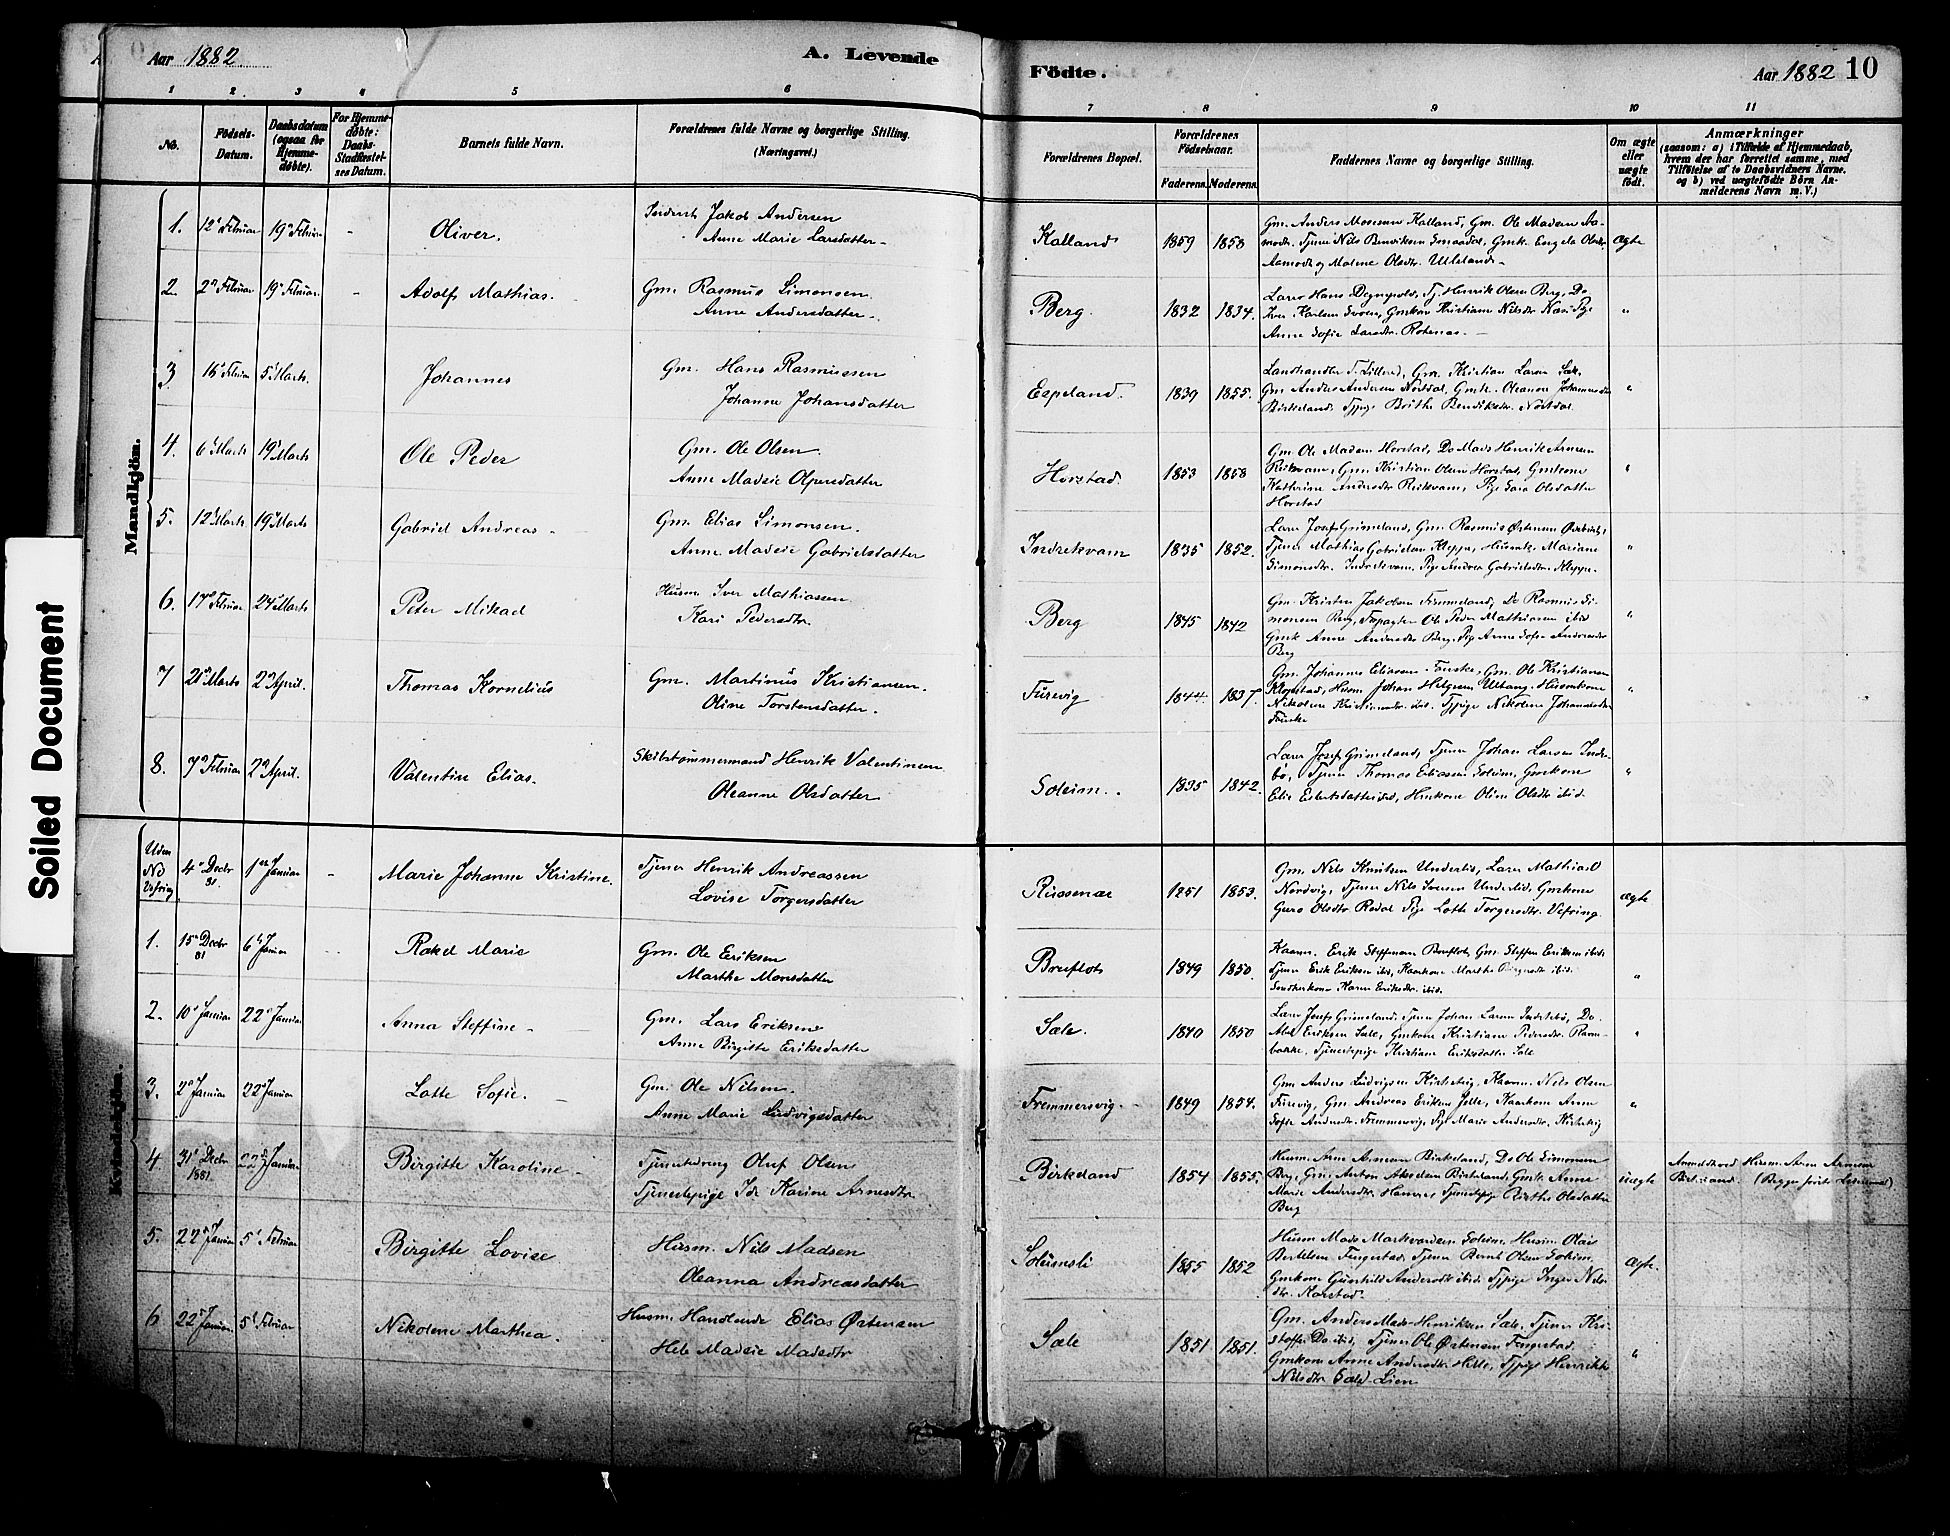 Aar 1882.
A. Levende
Födte.
Aar 1882 10
1 2 3 4 5 6
7 8 9 10 11
No.
Födsels-
Datum.
Daabsdatum
(ogsaa for
Hjemme-
døbte).
For Hjemme-
døbte:
Daabs-
Stadfæstel-
ses Datum.
Barnets fulde Navn.
Forældrenes fulde Navne og borgerlige Stilling.
(Næringsvei.)
Forældrenes Bopæl.
Forældrenes
Födselsaar.
Faderens. Moderens.
Faddernes Navne og borgerlige Stilling.
Om ægte
eller
uægte
født.
Anmærkninger
(saasom: a) i Tilfælde af Hjemmedaab,
hvem der har forrettet samme, med
Tilføielse af to Daabsvidners Navne.
og b) ved uægtefödte Børn An-
melderens Navn m. V.)
Mandkjön.
1. 12 Februar 19 Februar - Oliver. Jakob Andersen
Anne Marie Larsdatter -
Kalland 1859 1858 Gm. Anders Kalland, Gm. Ole Madsen Aa-
Ægte
2. 2 Februar 19 Februar - Adolf Mathias. Gm. Rasmus Simonsen
Anne Andersdatter -
Berg. 1832 1834. Lærer Hans Degnepoll, Tj. Henrik Olsen Berg, Do
Anne Sofie Larsdtr. Rotenas. - "
3 16 Februar 5 Marts. Johannes Gm. Hans Rasmussen
Johanne Johansdatter
Espeland. 1839 1855. Landhandler Gm. Kristian Larsen
Gm Anders Andersen Nordal, Gmk. Oleanna Johannesdtr
Birkeland. Tjpige Brithe Bendiksdtr. Nordal. "
4. 6 Marts 19 Marts Ole Peder Gm. Ole Olsen.
Anne Madsie Olpersdatter
Horstad. 1853 1858 Gm. Ole Madsen Horstad, Do Mads Henrik Arnesen
Gm. Kristian Olsen Horstad, Gmkone
Kathrine Andersdtr Reikvam, Pige Sara Olsdatter
Horstad "
5. 12 Marts 19 Marts Gabriel Andreas - Gm. Elias Simonsen.
Anne Madsie Gabrielsdatter
Indrekvam 1835 1852. Lærer Josef Grimeland, Gm. Rasmus Østensen
Tjener Mathias Gabrielsen Kleppe, Husmk. Mariane
Simonsdtr. Indrekvam, Pige Andrea Gabrielsdtr. Kleppe. "
6. 17 Februar 24 Marts Peter Mikael Husm. Iver Mathiassen
Kari Pedersdtr.
Berg 1845 1842 Gm. Kristen Jakobsen Do Rasmus Si-
monsen Berg, Ole Peder Mathiassen ibid
Gmk Anne Andersdtr Berg, Pige Anne Sofie Andersdtr
Berg "
7 21 Marts 2 April. Thomas Kornelius Gm. Martinus Kristiansen.
Oline Torstensdatter.
Furevig 1844. 1837. Gm. Johannes Eliassen Gm. Ole Kristiansen
Klopstad, Husm. Johan Helgesen Husmkone
Nikoline Kristiansdtr. ibid. Tjpige Nikoline Johannesdtr "
8. 7 Februar 2 April. Valentin Elias. Skibstømmermand Henrik Valentinsen
Oleanne Olsdatter
Soleim. 1835 1842. Lærer Josef Grimeland, Tjener Johan Larsen Indre-
bø, Tjener Thomas Eliassen Soleim, Gmkone
ibid, Husmkone Oline Olsdtr ibid. "
Kvindekjön.
Uden
No
Vefring 4 Decbr
81. 1 Januar - Marie Johanne Kristine. Tjener Henrik Andreassen
Lovise Torgersdatter
Russenæs 1851 1853. Gm. Nils Knutsen Underlid, Lærer Mathias O
Nordvig, Tjener Nils Underlid, Gmkone
Guro Olsdtr. Pige Lotte Torgersdtr. Vefring. ægte
1. 15 Decbr
81 6 Januar Rakel Marie Gm. Ole Eriksen
Marthe Monsdatter
Bruflot 1849 1850. Kaarm. Erik Steffensen Bruflot, Gm. Steffen Eriksen ibid.
Tjener Erik Eriksen ibid, Kaarkone Marthe ibid.
Karen Eriksdtr. ibid. "
2. 10 Januar 22 Januar Anna Steffine - Gm. Lars Eriksen
Anne Birgitte Eriksdatter
Sæle. 1840 1850 Lærer Josef Grimeland, Tjener Johan Larsen Indrebø, Do
Eriksen Sæle, Gmkone Kristiane Pedersdtr.
Tjenestepige Kristiane Eriksdatter Sæle "
3. 2 Januar 22 Januar Lotte Sofie. - Gm. Ole Nilsen.
Anne Marie Ludvigsdatter
Fremmersvig. 1849 1854. Gm. Anders Ludvigsen Kaarm. Nils Olsen
Furevig, Gm. Andreas Eriksen Kaarkone Anne
Sofie Andersdtr. Fremmersvig, Pige Marie Andersdtr. "
4 31 Decbr
1881. 22 Januar Birgitte Karoline - Tjenestedreng Oluf Olsen
Tjenestepige Ida Karine Arnesdtr.
Birkeland 1854 1855. Husm. Arne Arnesen Birkeland, Do Ole Simonsen
Berg, Gm. Anton Akselsen Birkeland, Gmk. Anne
Marie Andersdtr. Tjenestepige Birthe Olsdatter
Berg uægte Anmeldt ved Husm. Arne Arnesen
Birkeland. (Begges første Leiermaal)
5. 22 Januar 5 Februar Birgitte Lovise Husm. Nils Madsen
Oleanna Andreasdatter
Soleimsli 1855 1852 Husm Mads Markvardsen Soleim, Husm. Olai
Bertelsen Fengestad, Tjener Bernt Olsen Soleim,
Gmkone Gunhild Andersdtr ibid. Tjpige Inger Nils-
dtr. Ægte.
6 22 Januar. 5 Februar Nikoline Marthea. Husm. Handlende Elias Østensen
Hele Madsie Madsdtr
Sæle 1851 1851. Gm. Anders Mads Henriksen Sæle, Tjener Kri-
stoffer Do ibid, Tjener Ole Østensen Fengestad,
Gmkone Anne Andersdtr. Helle, Tjpige Henrikke
Nilsdtr Sæle-Lien "
Soiled Document